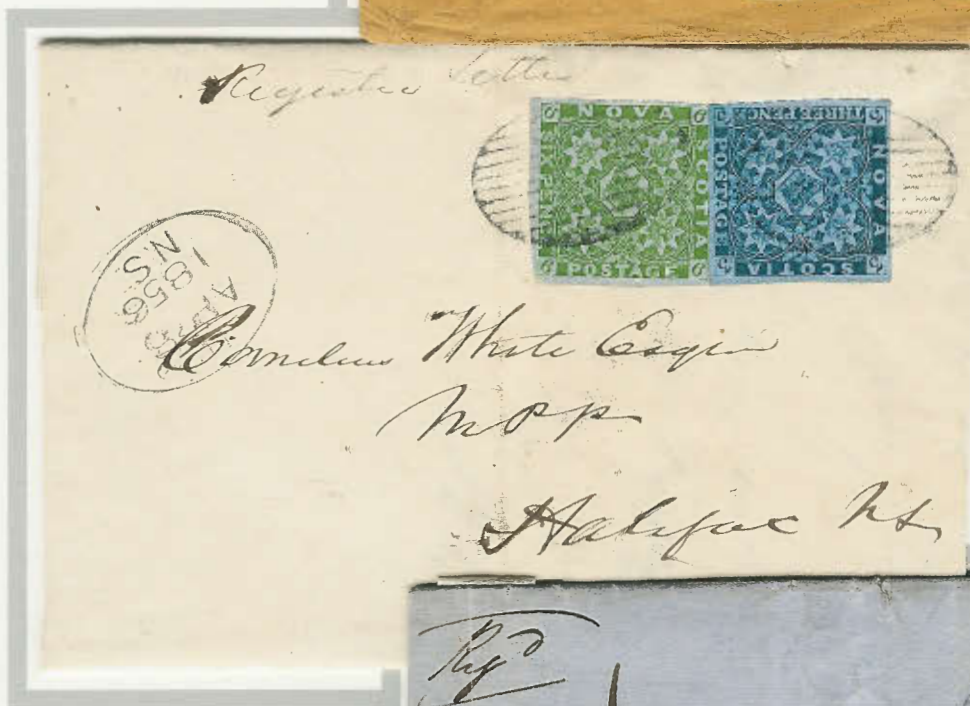 Register Letter
NOVA
SCOTIA
POSTAGE
SIX PENCE
THREE PENC
NOVA
SCOTIA
POSTAGE
AP
1856
N.S.
Cornelius White Esquir
M P P
Halifax NS
Regd